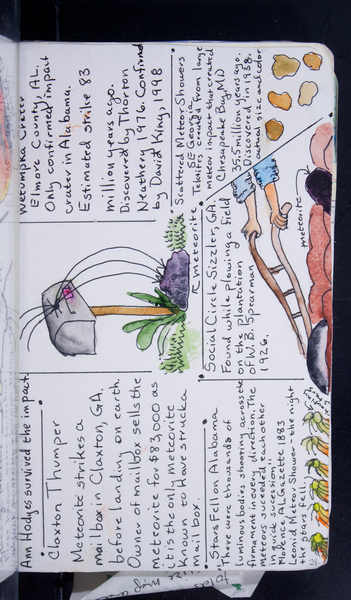 Ann Hodges survived the impact.
Claxton Thumper
Meteorite strikes a
mailbox in Claxton, GA.
before landing on earth.
Owner of mailbox sells the
meteorite for $83,000 as
it is the only meteorite
Known to have struck a
mailbox.
Wetumpka Crater
Elmore County, AL.
Only confirmed impact
crater in Alabama.
Estimated strike 83
million years ago.
Discovered by Thornton
Neathery, 1976. Confirmed
by David King, 1998
Stars Fell on Alabama
"There were thousands of
luminous bodies shooting across the
firmament in every direction. The
meteors succeeded each other
in quick sucession"
Florence, AL Gazette, 1883
Leonid Meteor Shower - the night
the stars fell.
meteorite
Social Circle Sizzler, GA.
Found while plowing a field
on the plantation
of W.B. Spearman
1926.
Scattered Meteor Showers
SE Georgia
Tektites created from large
meteor impact that created
Chesapeake Bay, MD
35.5 million years ago.
Discovered in 1938.
actual size and color
meteorite